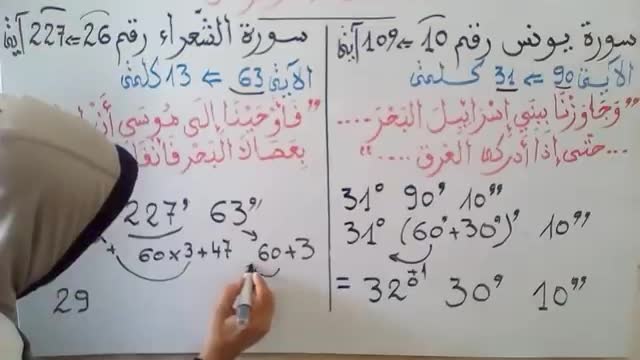 سورة يونس رقم 10 ⇐ 109 آية
الآية 90 ⇐ 31 كلمة
"وَجَاوَزْنَا بِبَنِي إِسْرَائِيلَ البَحْرَ....
....حَتَّى إِذَا أَدْرَكَهُ الغَرَق...."
31° 90' 10''
31° (60'+30')' 10''
= 32°⁺¹ 30' 10''
سورة الشعراء رقم 26 ⇐ 227 آية
الآية 63 ⇐ 13 كلمة
"فَأَوْحَيْنَا إِلَى مُوسَى أَن
بِعَصَاكَ البَحْرَ فَانْفَلَ
227' 63''
+ 60×3+47 60+3
29